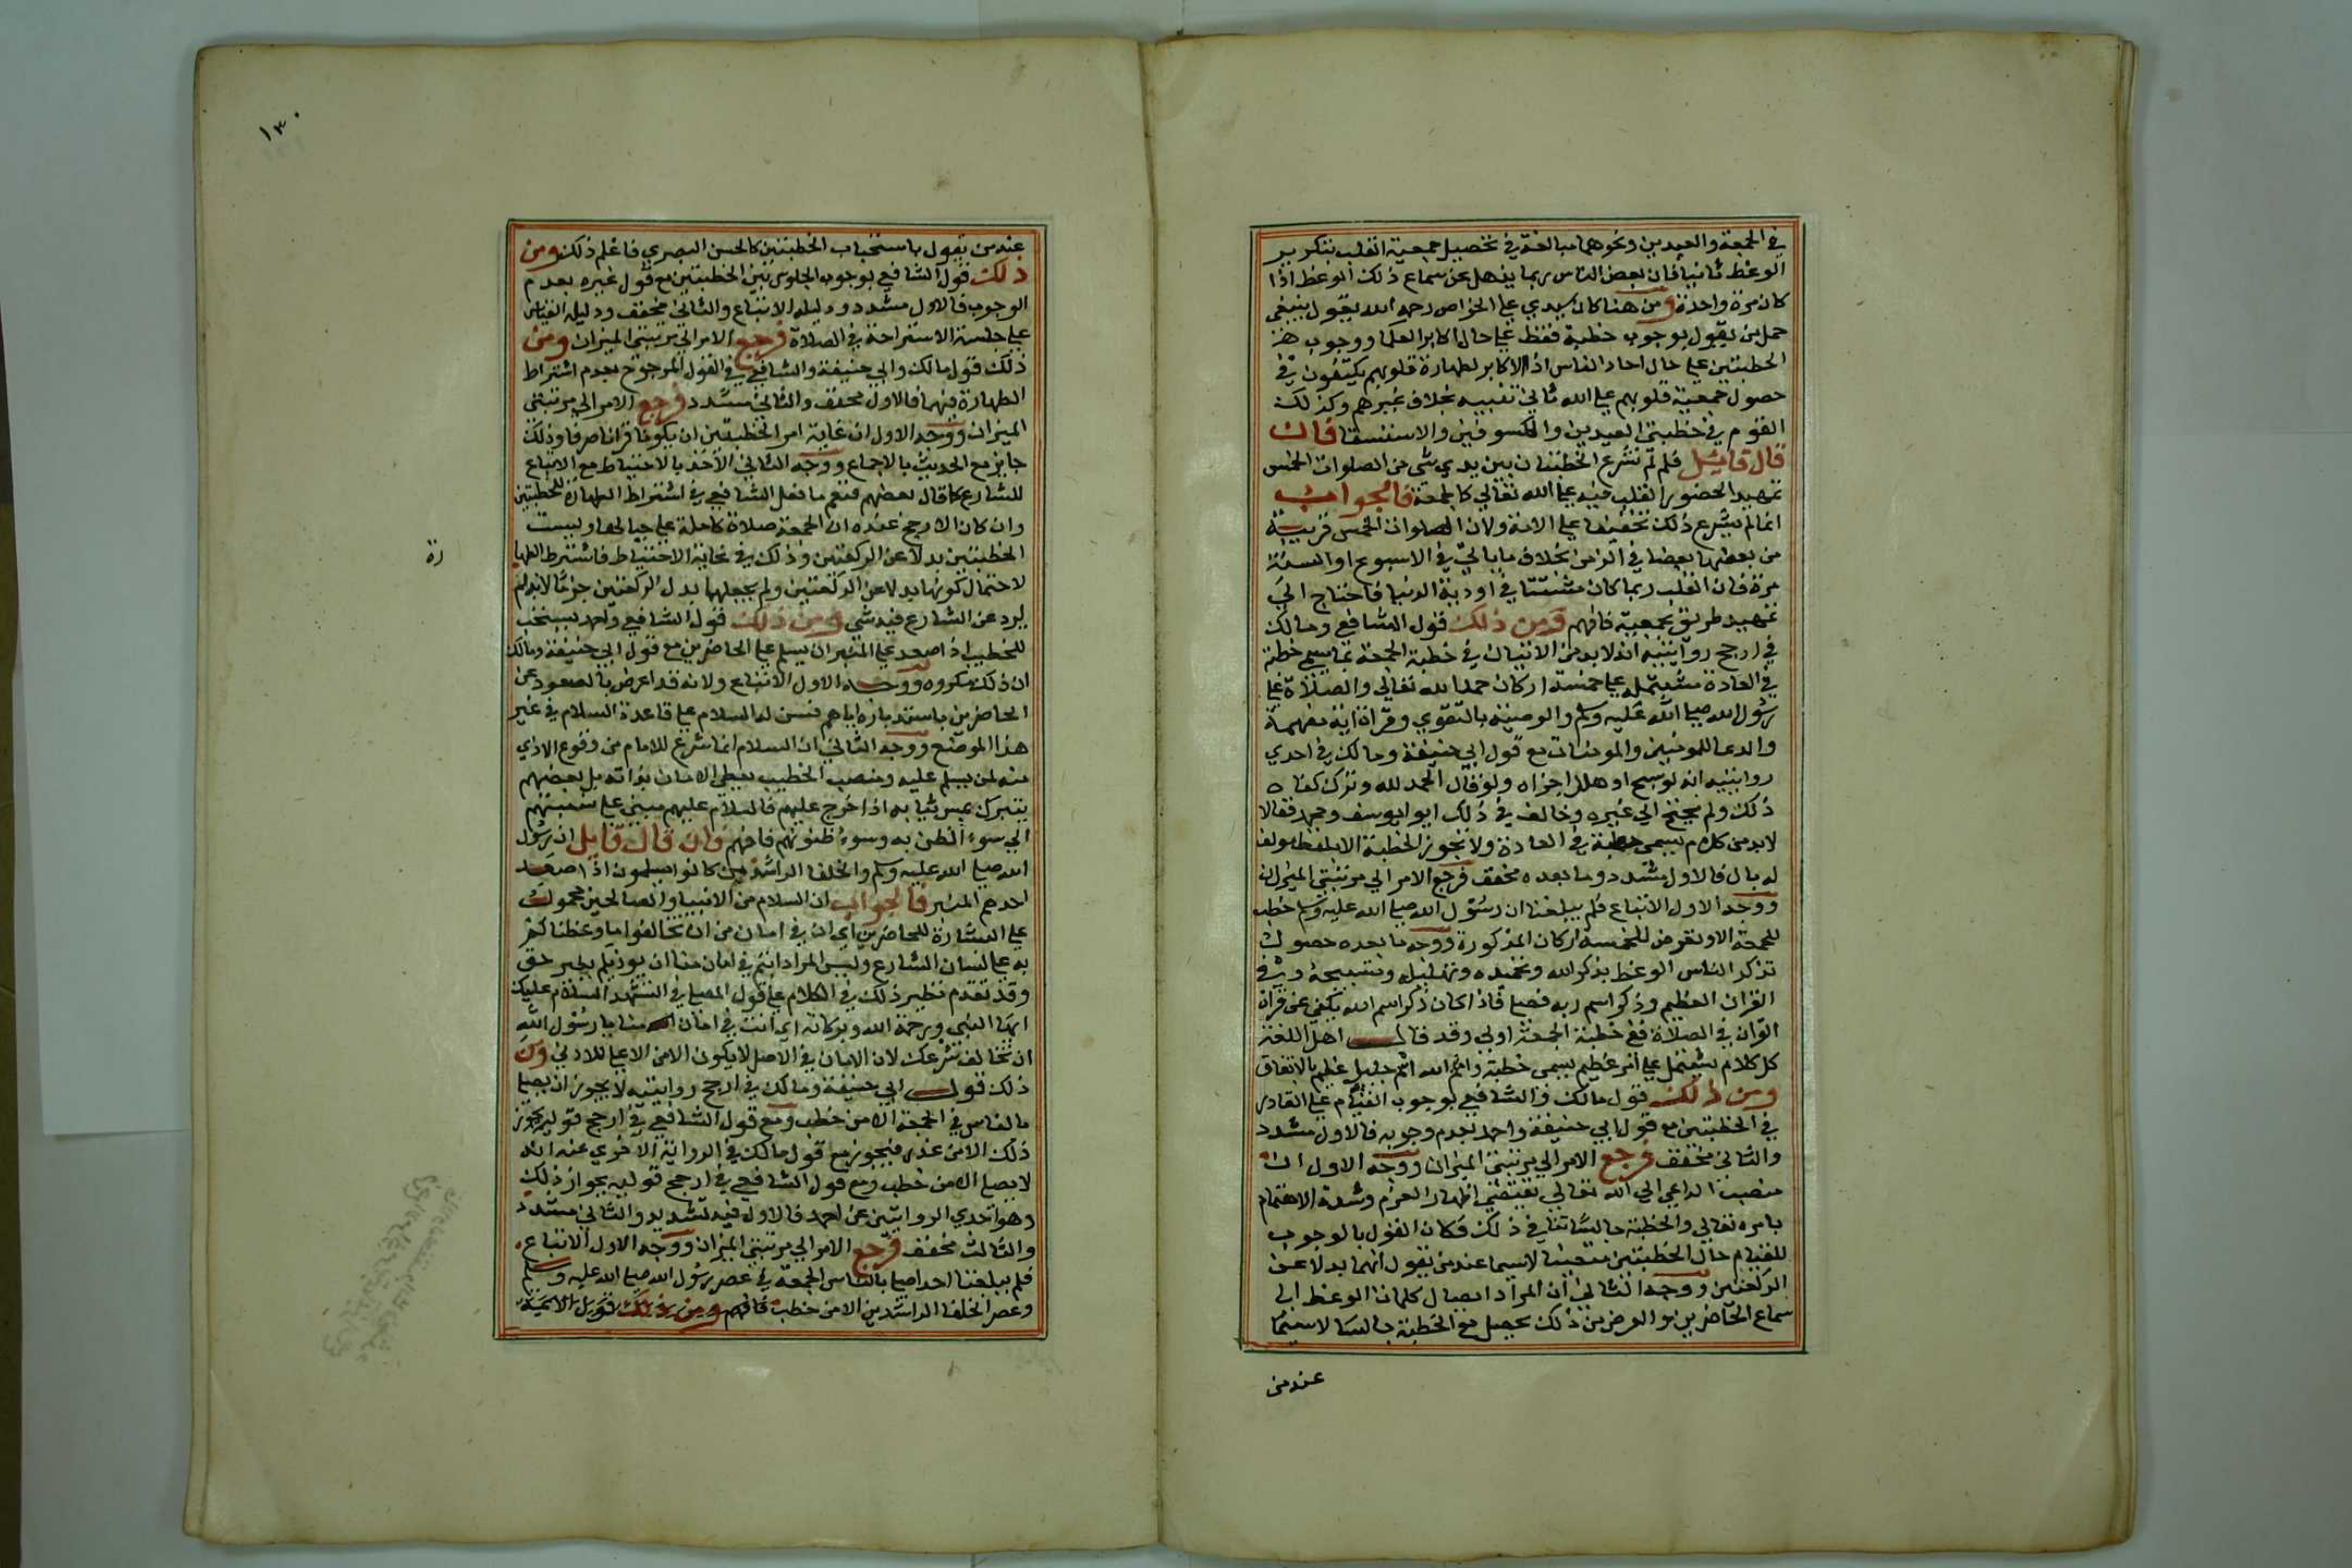 في الجمعة والعيدين ونحوهما مبالغة في تحصيل جمعية القلب بتكرير
الوعظ ثانيا فان بعض الناس ربما يذهل عن سماع ذلك الوعظ اذا
كان مرة واحدة ومن هنا كان سيدي علي الخواص رحمه الله يقول ينبغي
حمل من يقول بوجوب خطبة فقط علي حال اكابر العلما ووجوب
الخطبتين علي حال احاد الناس اذ الاكابر لطهارة قلوبهم يكتفون في
حصول جمعية قلوبهم علي الله ثاني تنبيه بخلاف غيرهم وكذلك
القوم في خطبتي العيدين والكسوفين والاستسقا فان
قال قائل فلم لم تشرع الخطبتان بين يدي شي من الصلوات الخمس
تمهيدا لحضور القلب فيه علي الله تعالي كالجمعة فالجواب
انما لم يشرع ذلك تخفيفا علي الامة ولان الصلوات الخمس قريبة
من بعضها بعضا في الزمن بخلاف ما ياتي في الاسبوع او السنة
مرة فان القلب ربما كان مشتتا في اودية الدنيا فاحتاج الي
تمهيد طريق بجمعيته فافهم ومن ذلك قول الشافعي ومالك
في ارجح روايتيه انه لابد من الاتيان في خطبة الجمعة بما يسمي خطبة
في العادة مشتمله علي خمسة اركان حمد الله تعالي والصلاة علي
رسول الله صلي الله عليه وسلم والوصية بالتقوي وقراة اية مفهمة
والدعا للمومنين والمومنات مع قول ابي حنيفة ومالك في احدي
روايتيه انه لو سبح او هلل اجزاه ولو قال الحمد لله ونزل كفاه
ذلك ولم يحتج الي غيره وخالف في ذلك ابو ايوسف ومحمد فقالا
لابد من كلام يسمي خطبة في العادة ولا تجوز الخطبة الا بلفظ مولف
له بال فالاول مشدد وما بعده مخفف فرجع الامر الي مرتبتي الميزان
ووجه الاول الاتباع فلم يبلغنا ان رسول الله صلي الله عليه وسلم خطب
للجمعة الا وتعرض للخمسة اركان المذكورة ووجه ما بعده حصول
تذكر الناس الوعظ بذكر الله وتحميده وتهليله وتسبيحه وفي
القران العظيم وذكر اسم ربه فصلي فاذا كان ذكر اسم الله يكفي عن قراة
القران في الصلاة ففي خطبة الجمعة اولي وقد قال اهل اللغة
كل كلام يشتمل علي امر عظيم يسمي خطبة واسم الله اسم جليل عظيم بالاتفاق
ومن ذلك قول مالك والشافعي بوجوب القيام علي القادر
في الخطبتين مع قول ابي حنيفة واحمد بعدم وجوبه فالاول مشدد
والثاني مخفف فرجع الامر الي مرتبتي الميزان ووجه الاول ان
منصب الداعي الي الله تعالي يقتضي اظهار العزم وشدة الاهتمام
بامره تعالي والخطبة جالسا تنافي ذلك فكان القول بالوجوب
للقيام حال الخطبتين متعينا لاسيما عند من يقول انهما بدلا عن
الركعتين ووجه الثاني ان المراد ايصال كلمات الوعظ الي
سماع الحاضرين والعرض من ذلك يحصل مع الخطبة جالسا لاسيما
عند من
١٣٠
عند من يقول باستحباب الخطبتين كالحسن البصري فاعلم ذلك ومن
ذلك قول الشافعي بوجوب الجلوس بين الخطبتين مع قول غيره بعدم
الوجوب فالاول مشدد ودليله الاتباع والثاني مخفف ودليله القياس
علي جلسة الاستراحة في الصلاة فرجع الامر الي مرتبتي الميزان ومن
ذلك قول مالك وابي حنيفة والشافعي في القول المرجوح بعدم اشتراط
الطهارة فيهما فالاول مخفف والثاني مشدد فرجع الامر الي مرتبتي
الميزان ووجه الاول ان غاية امر الخطبتين ان يكونا قرانا صرفا وذلك
جايز مع الحديث بالاجماع ووجه الثاني الاخذ بالاحتياط مع الاتباع
للشارع كما قال بعضهم فنعم ما فعل الشافعي في اشتراط الطهارة للخطبتين
وان كان الارجح عنده ان الجمعة صلاة كاملة علي حيالها وليست
الخطبتين بدلا عن الركعتين وذلك في غاية الاحتياط فاشترط الطها
رة
لاحتمال كونهما بدلا عن الركعتين ولم يجعلهما بدل الركعتين جزما لانه لم
يرد عن الشارع فيه شي ومن ذلك قول الشافعي واحمد يستحب
للخطيب اذا صعد علي المنبر ان يسلم علي الحاضرين مع قول ابي حنيفة ومالك
ان ذلك مكروه ووجه الاول الاتباع ولانه قد اعرض بالصعود عن
الحاضرين باستدباره اياهم فسن له السلام علي قاعدة السلام في غير
هذا الموضع ووجه الثاني ان السلام انما شرع للامام من وقوع الاذي
منه لمن يسلم عليه ومنصب الخطيب يعطي الامان بذاته بل بعضهم
يتبرك بمس ثيابه اذا خرج عليهم فالسلام عليهم مبني علي نسبتهم
الي سوء الظن به وسوء ظنونهم فافهم فان قال قايل ان رسول
الله صلي الله عليه وسلم والخلفا الراشدين كانوا يسلمون اذا صعد
احدهم المنبر فالجواب ان السلام من الانبيا والصالحين محمول
علي البشارة للحاضرين اي ان في امان من ان تخالفوا ما وعظناكم
به علي لسان الشارع وليس المراد انتم في امان منا ان يوذيكم بغير حق
وقد تقدم نظير ذلك في الكلام علي قول المصلي في التشهد السلام عليك
ايها النبي ورحمة الله وبركاته اي انت في امان منا يا رسول الله
ان تخالف شرعك لان الامان في الاصل لا يكون الا من الاعلي للادني ومن
ذلك قول ابي حنيفة ومالك في ارجح روايتيه لا يجوز ان يصلي
بالناس في الجمعة الا من خطب ومع قول الشافعي في ارجح قوليه يجوز
ذلك الا من عذر فيجوز مع قول مالك في الرواية الاخري عنه انه
لا يصلي الا من خطب ومع قول الشافعي في ارجح قوليه بجواز ذلك
وهو احدي الروايتين عن احمد فالاول فيه تشديد والثاني مشدد
والثالث مخفف فرجع الامر الي مرتبتي الميزان ووجه الاول الاتباع
فلم يبلغنا احدا صلي بالناس الجمعة في عصر رسول الله صلي الله عليه وسلم
وعصر الخلفا الراشدين الا من خطب فافهم ومن ذلك قول الائمة